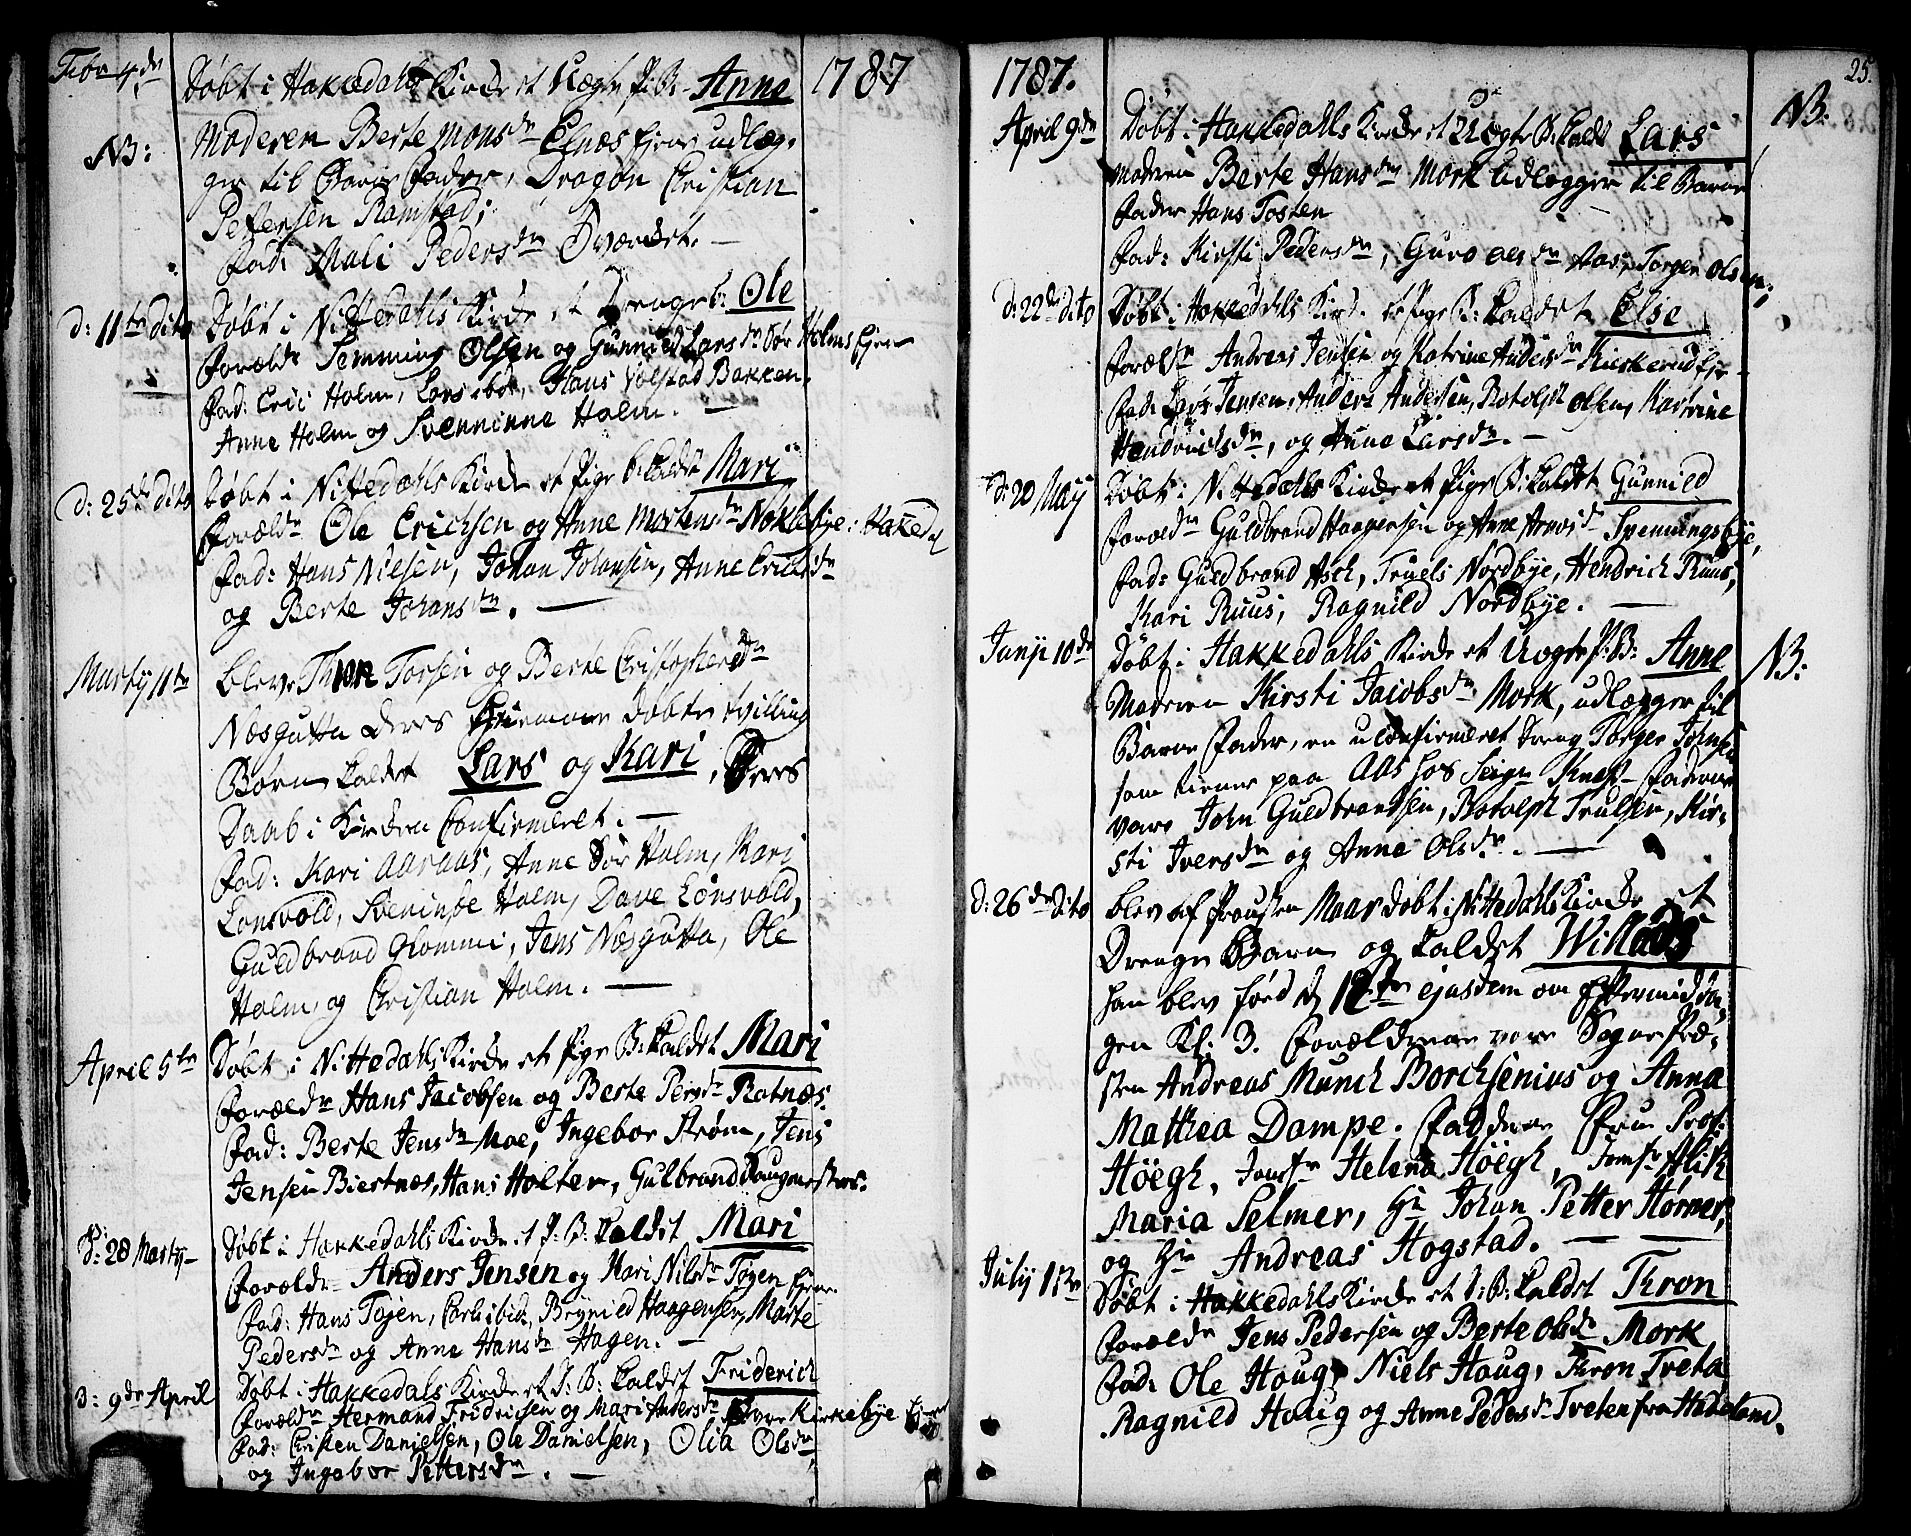 Febr 4de
Døbt i Hakkedahls Kirke et Uægte P: B: Anne
1787
NB:
Moderen Berte Monsdr Elnæs Ejer udlæg-
ger til Barne Fader, Dragon Christian
Pettersen Ramstad;
Fad: Mali Pedersdr Dværdet. —
d: 11te dito
Døbt i Nittedahls Kirke et Drenge b: Ole
Forældr Temming Olsen og Gunnild Larsdr Sør Holms Ejer
Fad: Eric Holm, Lars ibd, Hans Volstad Bakken,
Anne Holm og Svenninne Holm. —
d: 25de dito
Døbt i Nittedahls Kirke et Pige b: kaldet Mari
Forældr Ole Erichsen og Anne Mortensdr Noklebye: Hakedl
Fad: Hans Nielsen, Johan Johansen, Anne Ericsdr
og Berte Johansdr. —
Martij 11te
bleve Thron Torsen og Berte Christophersdr
Næsgutta deres hiemme døbte tvilling
Børn kaldet Lars og Kari, deres
Daab i Kirken Confirmeret. —
Fad: Kari Aaraas, Anne Sør Holm, Kari
Lonsvold, Sveninde Holm, Dave Lonsvold,
Guldbrand Glommi, Jens Næsgutta, Ole
Holm, og Christian Holm. —
April 5te
Døbt i Nittedahls Kirke et Pige B: kaldet Mari
Forældr Hans Jacobsen og Berte Persdr Rotnæs.
Fad: Berte Jensdr Moe, Ingebor Strøm, Jens
Jensen Biertnæs, Hans Holter, Gulbrand Haugmesters.
d: 28 Martij —
Døbt i Hakkedahls Kirke et P: B: kaldet Mari
Forældr Anders Jensen og Kari Nilsdr Tøyen Ejer
Fad: Hans Tøjen, Carl ibid, Brynild Haagensen, Marte
Pedersdr og Anne Hansdr Hagen. —
d: 9de April
Døbt i Hakkedals Kirke et D: B: kaldet Friderich
Forældr Hermand Fridrichsen og Mari Andersdr Kirkebye Ejer
Fad: Christen Danielsen, Ole Danielsen, Olia Olsdr
og Ingebor Pettersdr. —
1787.
25.
April 9de
Døbt i Hakkedahls Kirke et Uægte D: kaldt Lars
NB:
Moderen Berte Hansdr Mork udlegger til Barne
Fader Hans Tosten
Fad: Kirsti Pedersdr, Guro Olsdr Aas, Torger Olsen;
d: 22de dito
Døbt i Hakkedahls Kirke et Pige B: kaldet Else
Forældr Andreas Jensen og Katrine Andersdr Kirkerud Ejer
Fad: Lars Jensen, Anders Andersen, Botolph Olsen, Katrine
Hendrichsdr, og Anne Larsdr. —
d: 20 Maij
Døbt i Nittedahls Kirke et Pige B: kaldet Gunnild
Forældr Guldbrand Haagensen og Anne Arnesdr Spenningsbye,
Fad: Guldbrand Asch, Truels Nordbye, Hendrich Ruus,
Kari Ruus, Ragnild Nordbye. —
Junij 10de
Døbt i Hakkedahls Kirke et Uægte P: B: Anne
NB:
Moderen Kirsti Jacobsdr Mork, udlægger til
Barne Fader, en uConfirmeret dreng Torger Johnsen
som tiener paa Aas hos Seigr Knaph — Fadderne
vare John Guldbrandsen, Botolph Trulsen, Kir-
sti Iversdr og Anne Olsdr. —
d: 26de dito
blev af Provsten Maar døbt i Nittedahls Kirke et
Drenge Barn og kaldet Willads
han blev fød d: 12te ejusdem om Eftermidda-
gen Kl: 3. Forældrene vare Sogne Præ-
sten Andreas Munch Borchsenius og Anna
Mathea Dampe. Fadderne Fru Prof.
Höegh, Jomfr Helena Höegh, Jomfr Alith
Maria Selmer, Hr Johan Petter Hörner,
og Hr Andreas Hogstad. —
July 1te
Døbt i Hakkedahls Kirke et D: B: kaldet Thron
Forældr Jens Pedersen og Berte Olsdr Mork
Fad: Ole Haug, Niels Haug, Thron Tveta
Ragnild Haug og Anne Pedersdr Tveten fra Hadeland.